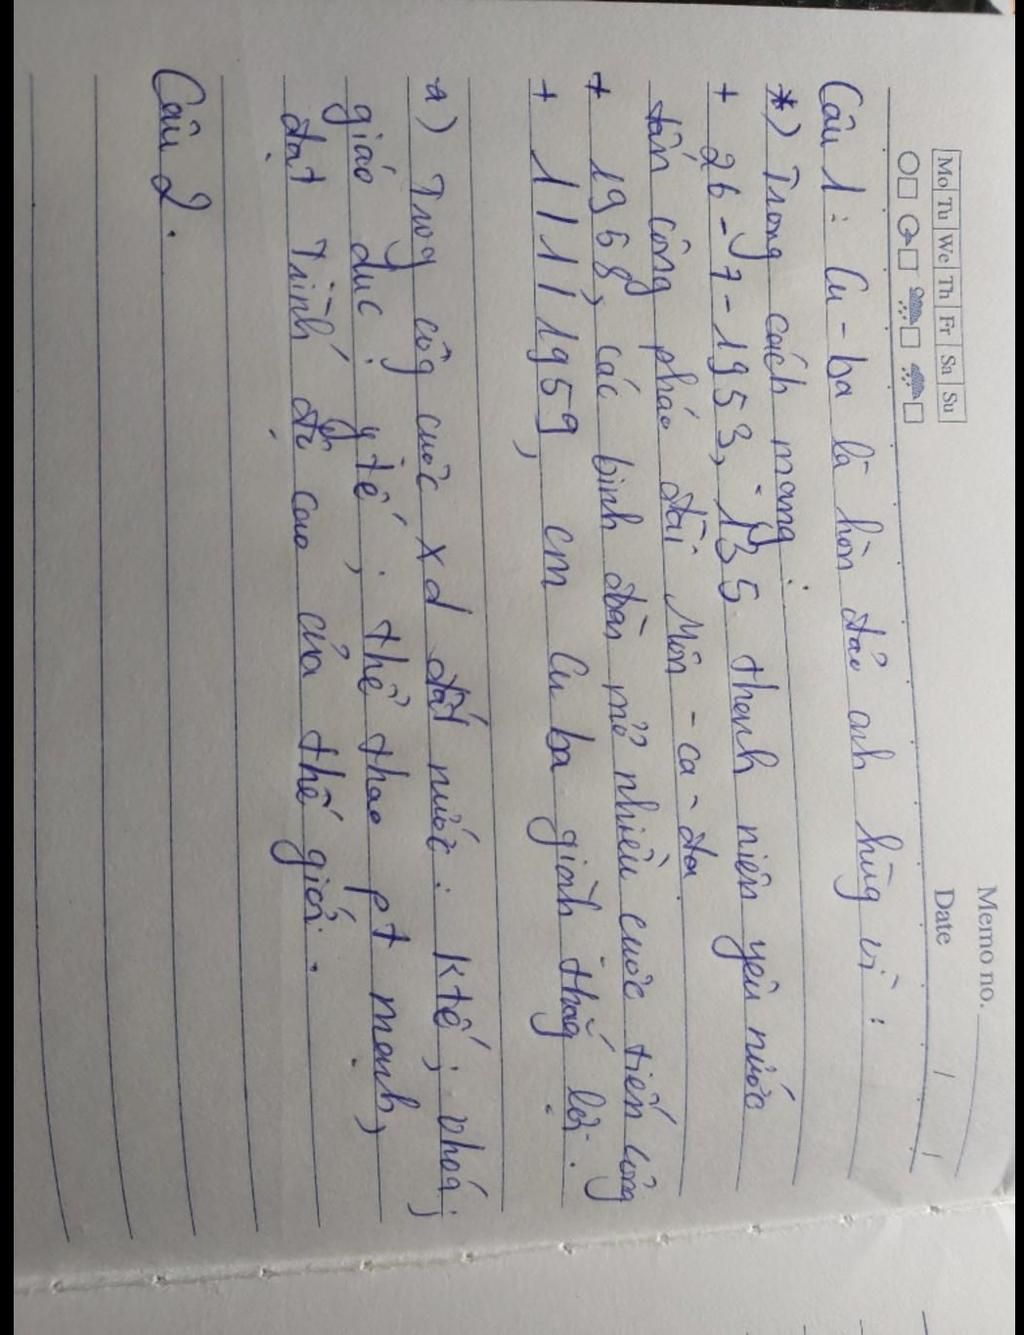 Memo no.
Mo Tu We Th Fr Sa Su
Date / /
Câu 1: Cu-ba là hòn đảo anh hùg vì:
*) Trong cách mạng
+ 26-7-1953, 135 thanh niên yêu nước
tấn công pháo đài Môn-ca-đa
+ 1958, các binh đoàn mở nhiều cuộc tiến công
+ 1/1/1959, cm Cu ba giành thắg lợi.
*) Trog côg cuộc xd đất nước: Ktế; vhoá;
giáo dục; ytế; thể thao pt mạnh,
đạt Trình độ cao của thế giới.
Câu 2.